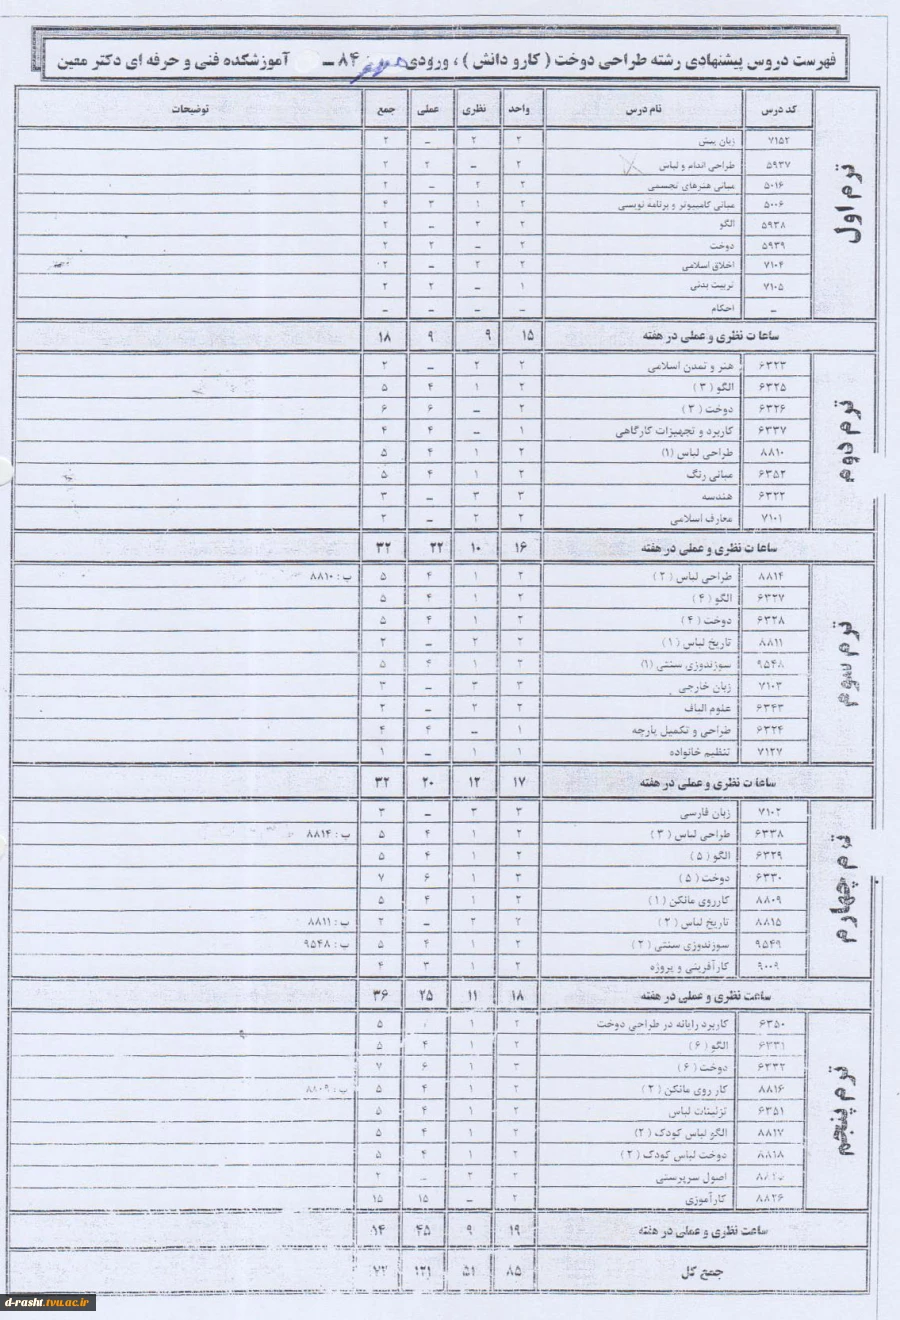 فهرست دروس پیشنهادی رشته طراحی دوخت ( کارو دانش ) ، ورودی ۸۴ ــ آموزشکده فنی و حرفه ای دکتر معین
کد درس نام درس واحد نظری عملی جمع توضیحات
ترم اول
۷۱۵۲ زبان پیش ۲ ۲ ــ ۲
۵۹۳۷ طراحی اندام و لباس ۲ ــ ۲ ۲
۵۰۱۶ مبانی هنرهای تجسمی ۲ ۲ ــ ۲
۵۰۰۶ مبانی کامپیوتر و برنامه نویسی ۲ ۱ ۳ ۴
۵۹۳۸ الگو ۲ ۲ ــ ۲
۵۹۳۹ دوخت ۲ ــ ۲ ۲
۷۱۰۴ اخلاق اسلامی ۲ ۲ ــ ۲
۷۱۰۵ تربیت بدنی ۱ ــ ۲ ۲
ــ احکام ــ ــ ــ ــ
ساعات نظری و عملی در هفته ۱۵ ۹ ۹ ۱۸
ترم دوم
۶۳۲۳ هنر و تمدن اسلامی ۲ ۲ ــ ۲
۶۳۲۵ الگو ( ۳ ) ۲ ۱ ۴ ۵
۶۳۲۶ دوخت ( ۳ ) ۲ ــ ۶ ۶
۶۳۳۷ کاربرد و تجهیزات کارگاهی ۱ ــ ۴ ۴
۸۸۱۰ طراحی لباس (۱) ۲ ۱ ۴ ۵
۶۳۵۲ مبانی رنگ ۲ ۱ ۴ ۵
۶۳۲۲ هندسه ۳ ۳ ــ ۳
۷۱۰۱ معارف اسلامی ۲ ۲ ــ ۲
ساعات نظری و عملی در هفته ۱۶ ۱۰ ۲۲ ۳۲
ترم سوم
۸۸۱۴ طراحی لباس ( ۲ ) ۲ ۱ ۴ ۵ پ : ۸۸۱۰
۶۳۲۷ الگو ( ۴ ) ۲ ۱ ۴ ۵
۶۳۲۸ دوخت ( ۴ ) ۲ ۱ ۴ ۵
۸۸۱۱ تاریخ لباس ( ۱ ) ۲ ۲ ــ ۲
۹۵۴۸ سوزندوزی سنتی (۱) ۲ ۱ ۴ ۵
۷۱۰۳ زبان خارجی ۳ ۳ ــ ۳
۶۳۴۳ علوم الیاف ۲ ۲ ــ ۲
۶۳۲۴ طراحی و تکمیل پارچه ۱ ــ ۴ ۴
۷۱۲۷ تنظیم خانواده ۱ ۱ ــ ۱
ساعات نظری و عملی در هفته ۱۷ ۱۲ ۲۰ ۳۲
ترم چهارم
۷۱۰۲ زبان فارسی ۳ ۳ ــ ۳
۶۳۳۸ طراحی لباس ( ۳ ) ۲ ۱ ۴ ۵ پ : ۸۸۱۴
۶۳۲۹ الگو ( ۵ ) ۲ ۱ ۴ ۵
۶۳۳۰ دوخت ( ۵ ) ۳ ۱ ۶ ۷
۸۸۰۹ کارروی مانکن ( ۱ ) ۲ ۱ ۴ ۵
۸۸۱۵ تاریخ لباس ( ۲ ) ۲ ۲ ــ ۲ پ : ۸۸۱۱
۹۵۴۹ سوزندوزی سنتی ( ۲ ) ۲ ۱ ۴ ۵ پ : ۹۵۴۸
۹۰۰۹ کارآفرینی و پروژه ۲ ۱ ۳ ۴
ساعت نظری و عملی در هفته ۱۸ ۱۱ ۲۵ ۳۶
ترم پنجم
۶۳۵۰ کاربرد رایانه در طراحی دوخت ۲ ۱ ۵
۶۳۳۱ الگو ( ۶ ) ۲ ۱ ۴ ۵
۶۳۳۲ دوخت ( ۶ ) ۳ ۱ ۶ ۷
۸۸۱۶ کار روی مانکن ( ۲ ) ۲ ۱ ۴ ۵ پ : ۸۸۰۹
۶۳۵۱ تزئینات لباس ۲ ۱ ۴ ۵
۸۸۱۷ الگو لباس کودک ( ۲) ۲ ۱ ۴ ۵
۸۸۱۸ دوخت لباس کودک ( ۲ ) ۲ ۱ ۴ ۵
اصول سرپرستی ۲ ۲ ــ ۲
۸۸۲۶ کارآموزی ۲ ــ ۱۵ ۱۵
ساعت نظری و عملی در هفته ۱۹ ۹ ۴۵ ۱۴
جمع کل ۸۵ ۵۱ ۱۲۱
d-rasht.tvu.ac.ir